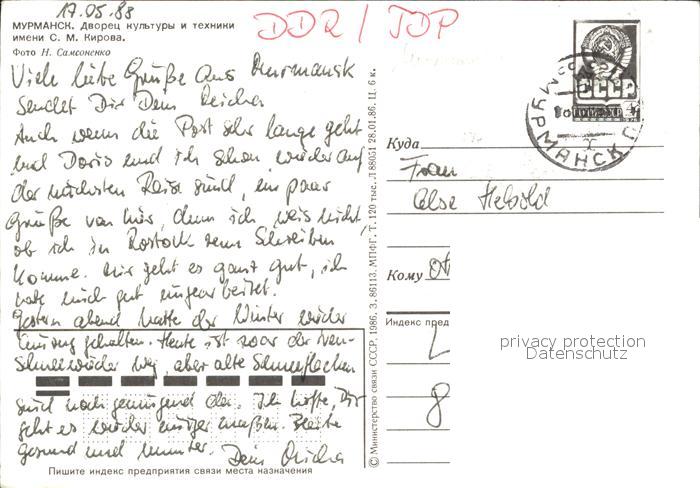 17.05.88
МУРМАНСК. Дворец культуры и техники
имени С. М. Кирова.
Фото Н. Самсоненко
DDR / ГДР
Viele liebe Grüße aus Murmansk
sendet Dir Dein
Auch wenn die Post sehr lange geht
und Doris und ich schon wieder auf
der nächsten Reise sind, ein paar
Grüße von hier, denn ich weis nicht,
ob ich in Rostock zum Schreiben
komme. Mir geht es ganz gut, ich
habe mich gut eingearbeitet.
Gestern abend hatte der Winter wieder
Einzug gehalten. Heute ist zwar der Neu-
schnee wieder weg, aber alte Schneeflächen
sind noch genügend da. Ich hoffe, Dir
geht es wieder einigermaßen. Bleibe
gesund und munter. Dein
Пишите индекс предприятия связи места назначения
© Министерство связи СССР, 1986. З. 86113. МПФГ. Т. 120 тыс. Л 88051 28.01.86. Ц. 6 к.
СССР
МУРМАНСК
Куда
Frau
Else
Кому
Индекс пред
L
8
privacy protection
Datenschutz